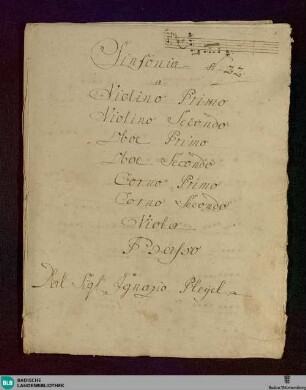 Sinfonia
N 22
a
Violino Primo
Violino Secondo
Oboe Primo
Oboe Secondo
Corno Primo
Corno Secondo
Viola
Basso
Del Sigl Ignazio Pleyel
BLB
BADISCHE
LANDESBIBLIOTHEK
Baden-Württemberg